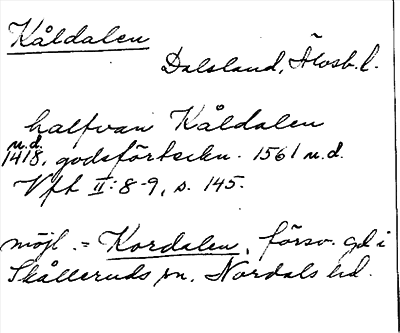 Kåldalen
Dalsland, Älvsb. l.
halfvan Kåldalen
n.d.
1418, godsförteckn. 1561 n.d.
Vft II:8-9, s. 145.
möjl. = Kordalen, försv. gd i
Skålleruds sn, Nordals hd.